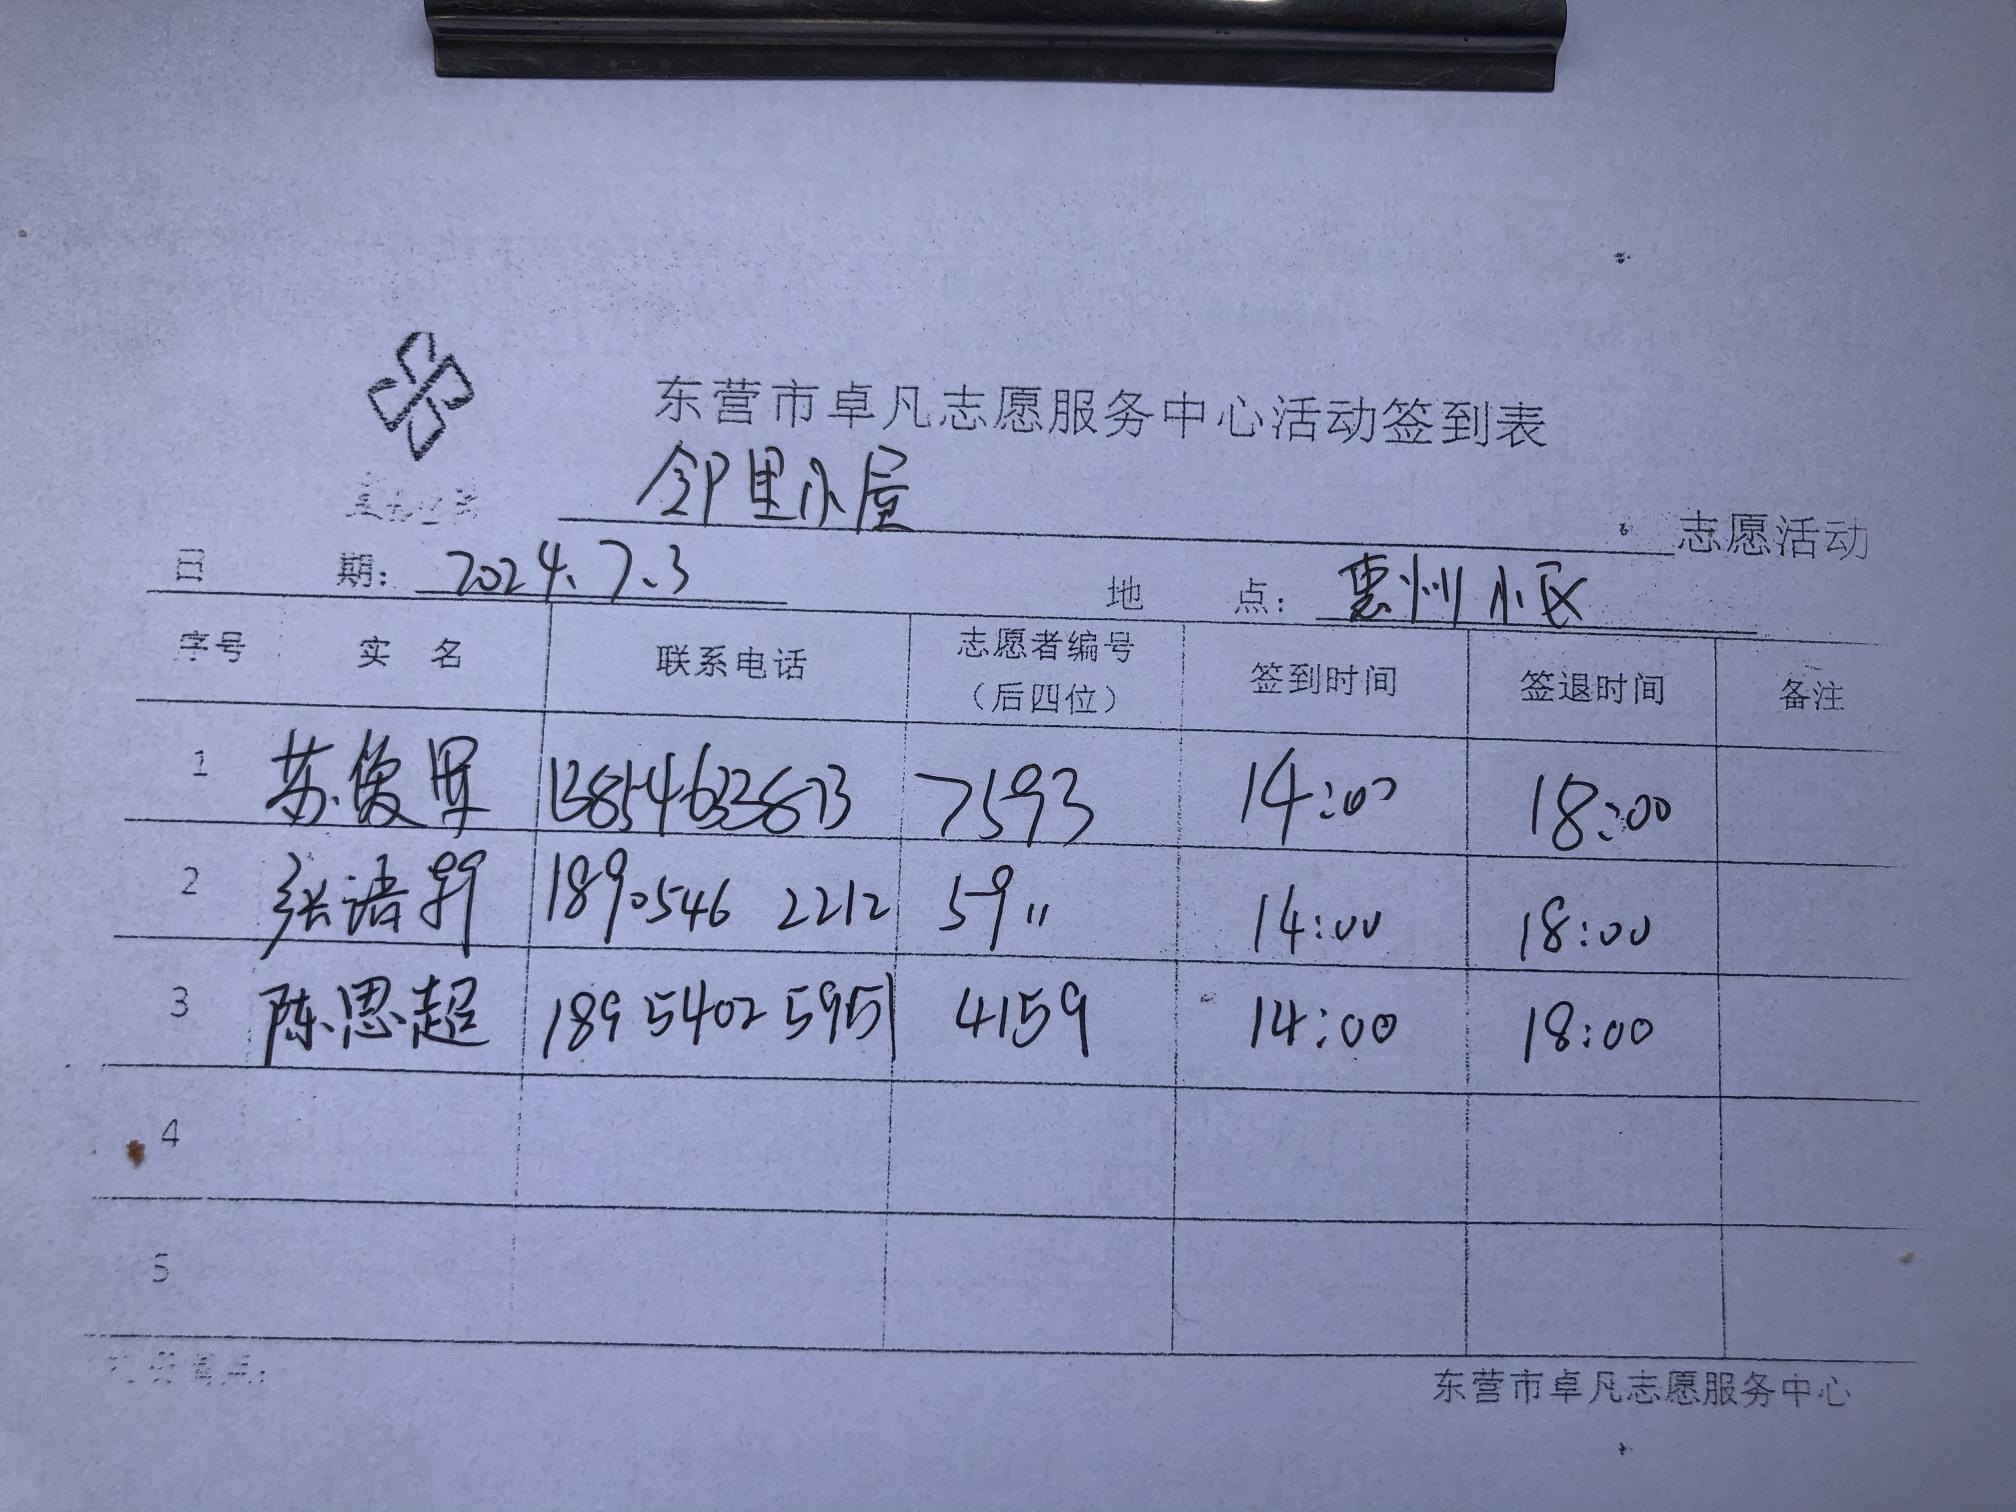 东营市卓凡志愿服务中心活动签到表
邻里小屋 志愿活动
日 期: 2024.7.3 地 点: 惠州小区
序号 实 名 联系电话 志愿者编号（后四位） 签到时间 签退时间 备注
1 苏俊 13854633673 7593 14:00 18:00
2 张 18905462212 5911 14:00 18:00
3 陈思超 18954025951 4159 14:00 18:00
4
5
东营市卓凡志愿服务中心